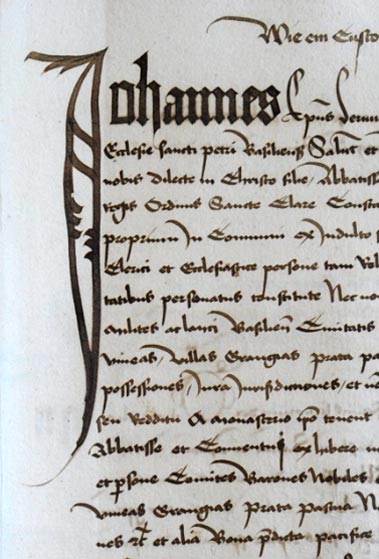 Wie ein Custo
Johannes Ep̃us Servu
Ecclesie sancti petri Basilieñ Salut̃ et
nobis dilecte in Christo filie, Abbatiss
Regis Ordinis Sancte Clare Consta
proprium In Communi ex Indulto s
Clerici et Ecclesiastice persone tam Vol
tatibus personatus constitute Nec no
milites ac laici Basilieñ Civitatis
vineas, villas Grangias prata pa
possessiones, Iura Iurisdictiones, et
seu Redditu A monasterio ip̃o tenent
Abbatisse et Conventui ex libere
et p̃sone Comites Barones Nobiles
vineas Grangias Prata Pascua N
nes et alia Bona p̃dicta pacifice